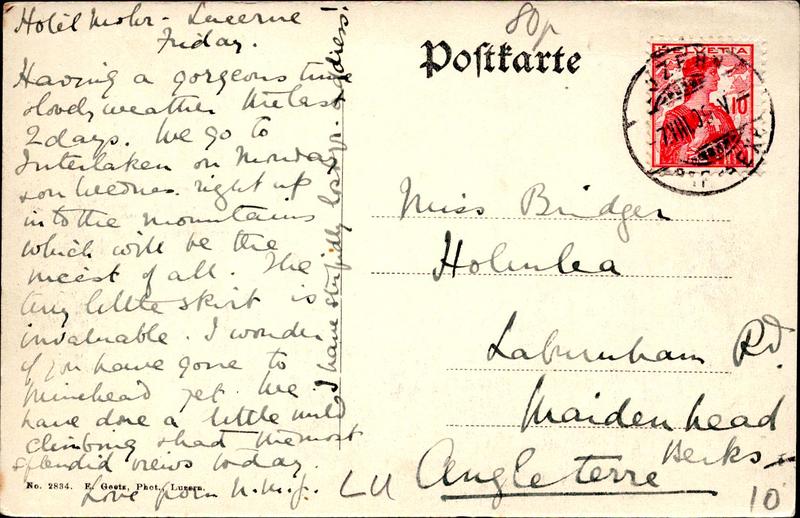 Hotel Mohr - Lucerne
Friday.
Having a gorgeous time
& lovely weather the last
2 days. We go to
Interlaken on Monday
& on Wednes. right up
into the mountains
which will be the
nicest of all. The
tiny little skirt is
invaluable. I wonder
if you have gone to
Minehead yet. We
have done a little mild
climbing & had the most
splendid views today.
Love from
I have stupidly lost yr. address!
80p
Postkarte
HELVETIA
10
LUZERN
Miss Bridger
Holmlea
Laburnham Rd.
Maidenhead
Berks
Angleterre
No. 2834. E. Goetz, Phot., Luzern.
LU
10